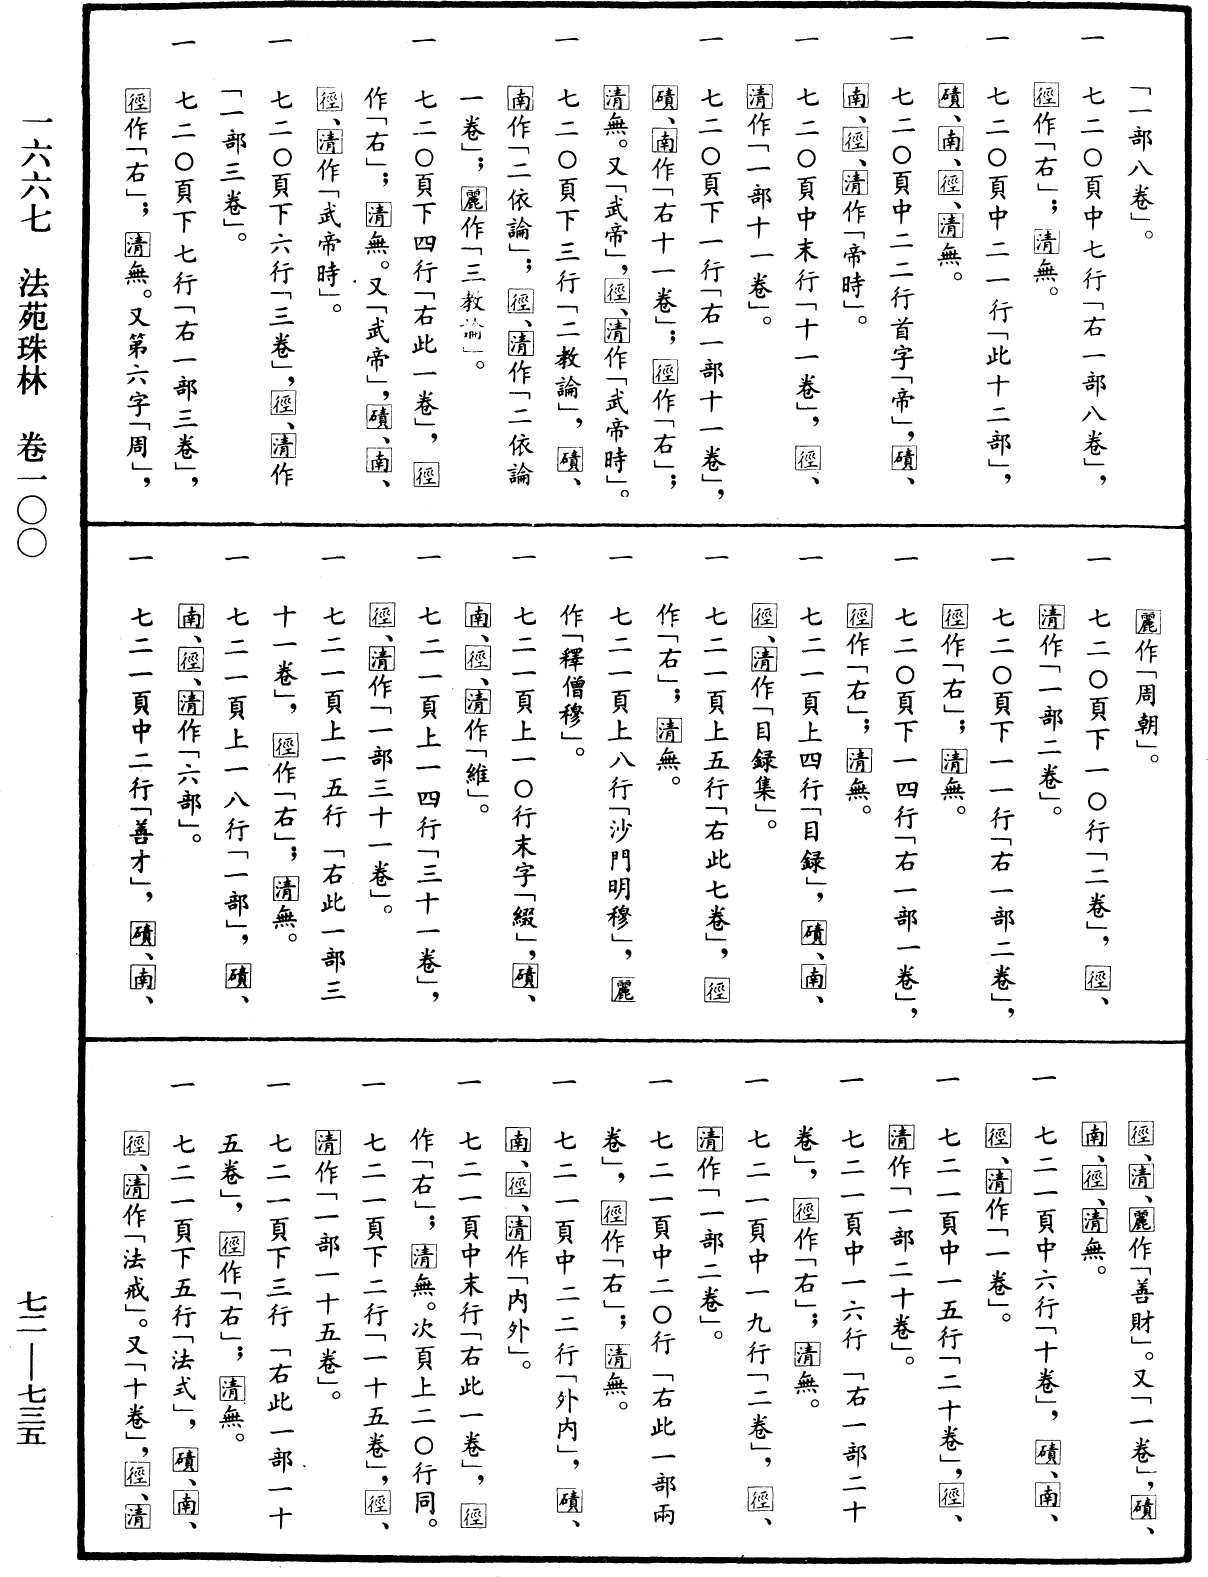 「一部八卷」。
一　七二〇頁中七行「右一部八卷」，
徑作「右」；清無。
一　七二〇頁中二一行「此十二部」，
磧、南、徑、清無。
一　七二〇頁中二二行首字「帝」，磧、
南、徑、清作「帝時」。
一　七二〇頁中末行「十一卷」，徑、
清作「一部十一卷」。
一　七二〇頁下一行「右一部十一卷」，
磧、南作「右十一卷」；徑作「右」；
清無。又「武帝」，徑、清作「武帝時」。
一　七二〇頁下三行「二教論」，磧、
南作「二依論」；徑、清作「二依論
一卷」；麗作「三教論」。
一　七二〇頁下四行「右此一卷」，徑
作「右」；清無。又「武帝」，磧、南、
徑、清作「武帝時」。
一　七二〇頁下六行「三卷」，徑、清作
「一部三卷」。
一　七二〇頁下七行「右一部三卷」，
徑作「右」；清無。又第六字「周」，
麗作「周朝」。
一　七二〇頁下一〇行「二卷」，徑、
清作「一部二卷」。
一　七二〇頁下一一行「右一部二卷」，
徑作「右」；清無。
一　七二〇頁下一四行「右一部一卷」，
徑作「右」；清無。
一　七二一頁上四行「目録」，磧、南、
徑、清作「目録集」。
一　七二一頁上五行「右此七卷」，徑
作「右」；清無。
一　七二一頁上八行「沙門明穆」，麗
作「釋僧穆」。
一　七二一頁上一〇行末字「綴」，磧、
南、徑、清作「維」。
一　七二一頁上一四行「三十一卷」，
徑、清作「一部三十一卷」。
一　七二一頁上一五行「右此一部三
十一卷」，徑作「右」；清無。
一　七二一頁上一八行「一部」，磧、
南、徑、清作「六部」。
一　七二一頁中二行「善才」，磧、南、
徑、清、麗作「善財」。又「一卷」，磧、
南、徑、清無。
一　七二一頁中六行「十卷」，磧、南、
徑、清作「一卷」。
一　七二一頁中一五行「二十卷」，徑、
清作「一部二十卷」。
一　七二一頁中一六行「右一部二十
卷」，徑作「右」；清無。
一　七二一頁中一九行「二卷」，徑、
清作「一部二卷」。
一　七二一頁中二〇行「右此一部兩
卷」，徑作「右」；清無。
一　七二一頁中二二行「外内」，磧、
南、徑、清作「内外」。
一　七二一頁中末行「右此一卷」，徑
作「右」；清無。次頁上二〇行同。
一　七二一頁下二行「一十五卷」，徑、
清作「一部一十五卷」。
一　七二一頁下三行「右此一部一十
五卷」，徑作「右」；清無。
一　七二一頁下五行「法式」，磧、南、
徑、清作「法戒」。又「十卷」，徑、清
一六六七　法苑珠林　卷一〇〇
七二——七三五